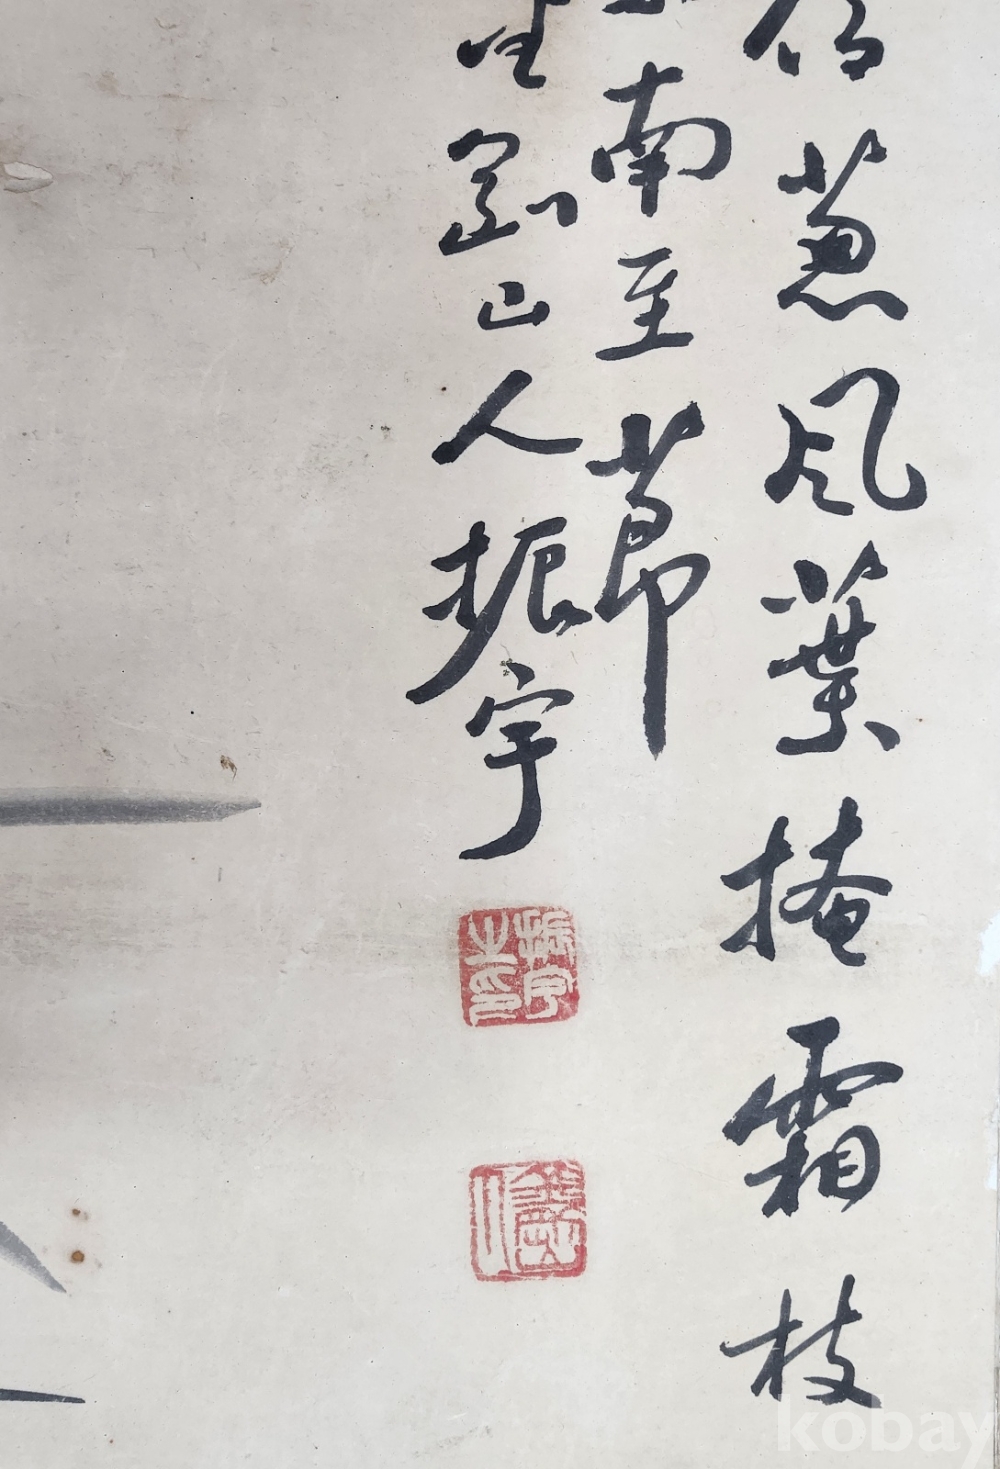 葱風葉掩霜枝
南至節
金剛山人振宇
振宇之印
kobay